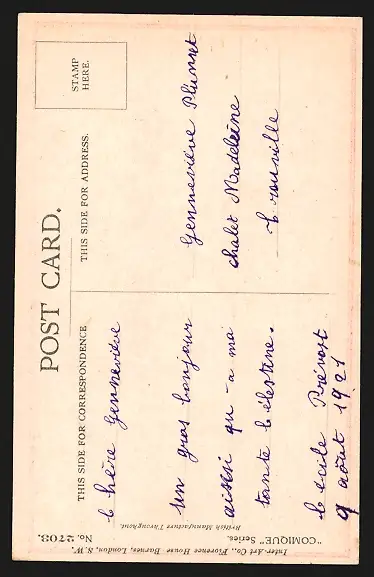 POST CARD.
THIS SIDE FOR CORRESPONDENCE
THIS SIDE FOR ADDRESS.
STAMP
HERE.
Chère Genneviève
un gros bonjour
aissi qu-a ma
tante Célestine.
Cécile Prévost
9 août 1921
Genneviève Plunset
chalet Madeleine
Trouville
British Manufacture Throughout.
No. 2703.
"COMIQUE" Series.
Inter-Art Co., Florence House Barnes, London, S.W.